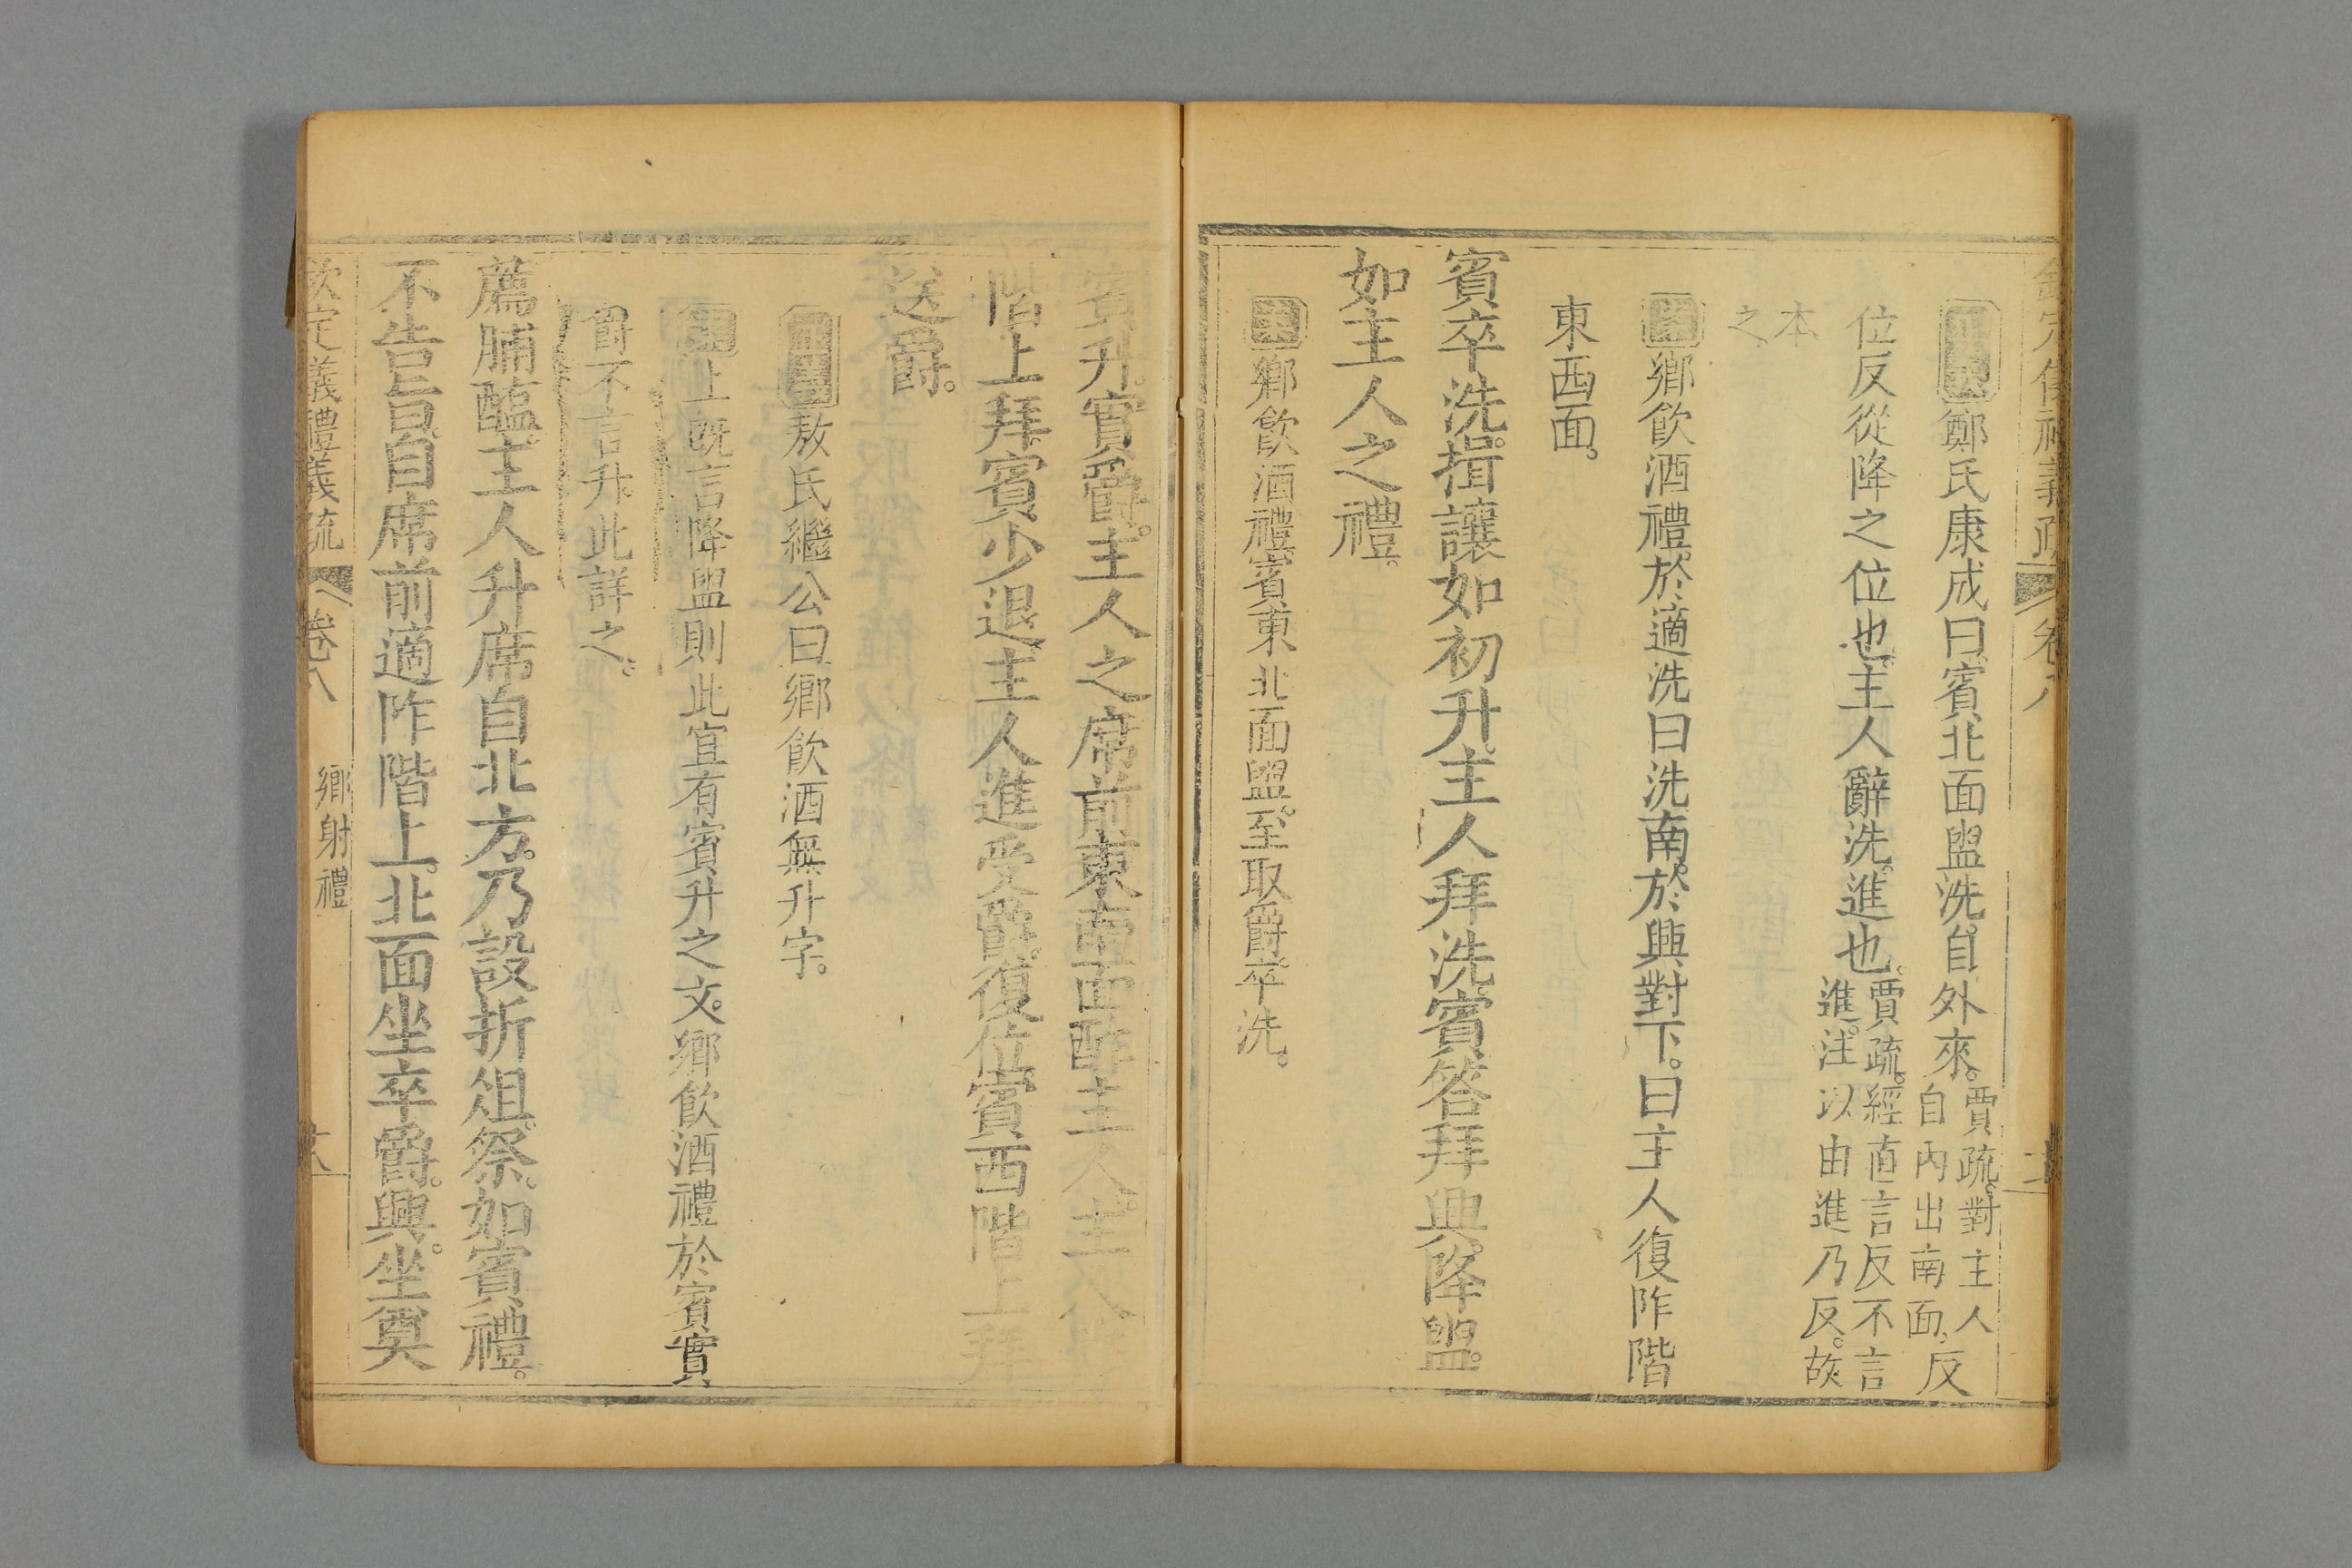 欽定儀禮義疏 卷八
正義鄭氏康成曰賓北面盥洗自外來。賈疏對主人
自內出南面。反
位反從降之位也主人辭洗。進也。賈疏。經直言反不言
進。注以由進乃反。故
本
之
案鄉飲酒禮於適洗曰洗南。於興對下。曰主人復阼階
東西面。
賓卒洗。揖讓如初升。主人拜洗。賓答拜興。降盥。
如主人之禮。
案鄉飲酒禮賓東北面盥。至取爵。卒洗。
賓升。實爵。主人之席前東南面酢主人。主人
階上拜。賓少退。主人進受爵。復位。賓西階上拜
送爵。
正義敖氏繼公曰鄉飲酒無升字。
案上既言降盥則此宜有賓升之文。鄉飲酒禮於賓實
爵不言升。此詳之。
薦脯醢。主人升席自北方。乃設折俎。祭。如賓禮。
不告旨。自席前適阼階上。北面坐卒爵。興。坐奠
欽定義禮義疏 卷八 鄉射禮